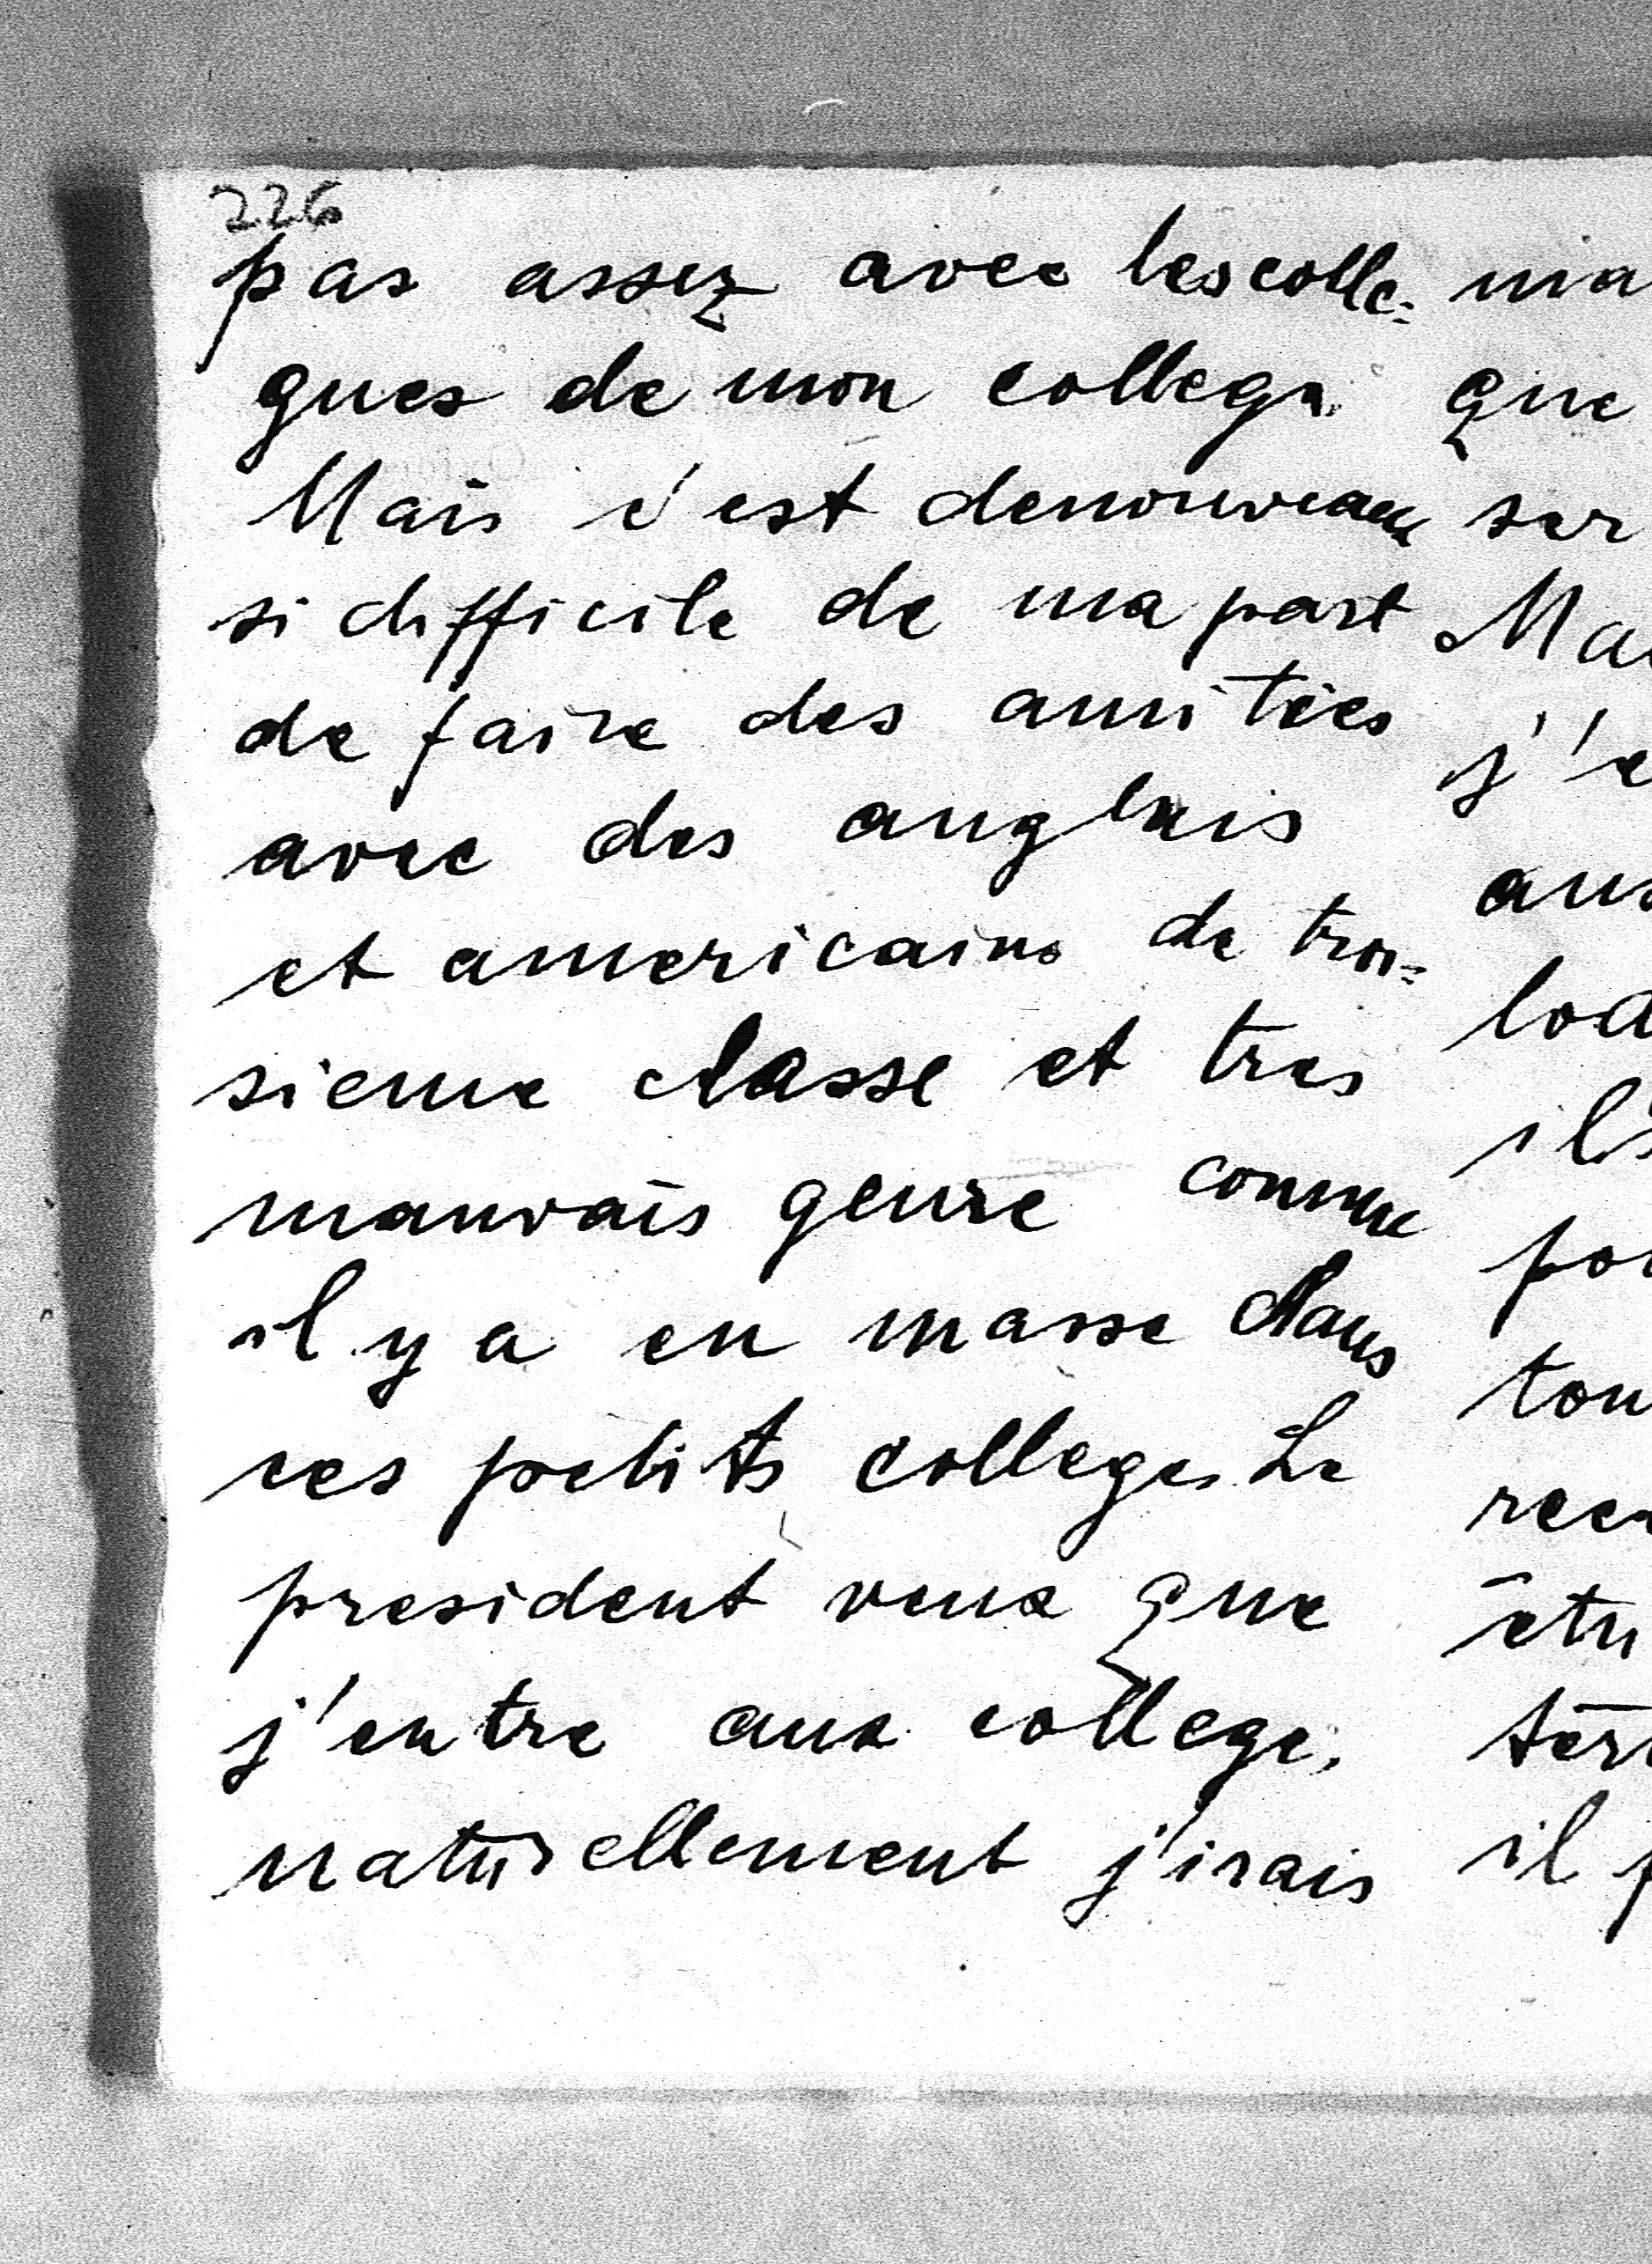 226
pas assez avec les colle=
gues de mon college.
Mais c'est denouveau
si difficile de ma part
de faire des amitiées
avec des anglais
et americains de troi=
sieme classe et tres
mauvais genre comme
il y a en masse dans
ces petits colleges. Le
president veux que
j'entre aux college,
naturellement j'irais
ma
que
ser
Ma
j'e
aus
loa
ils
pou
tou
rec
étu
tér
il p